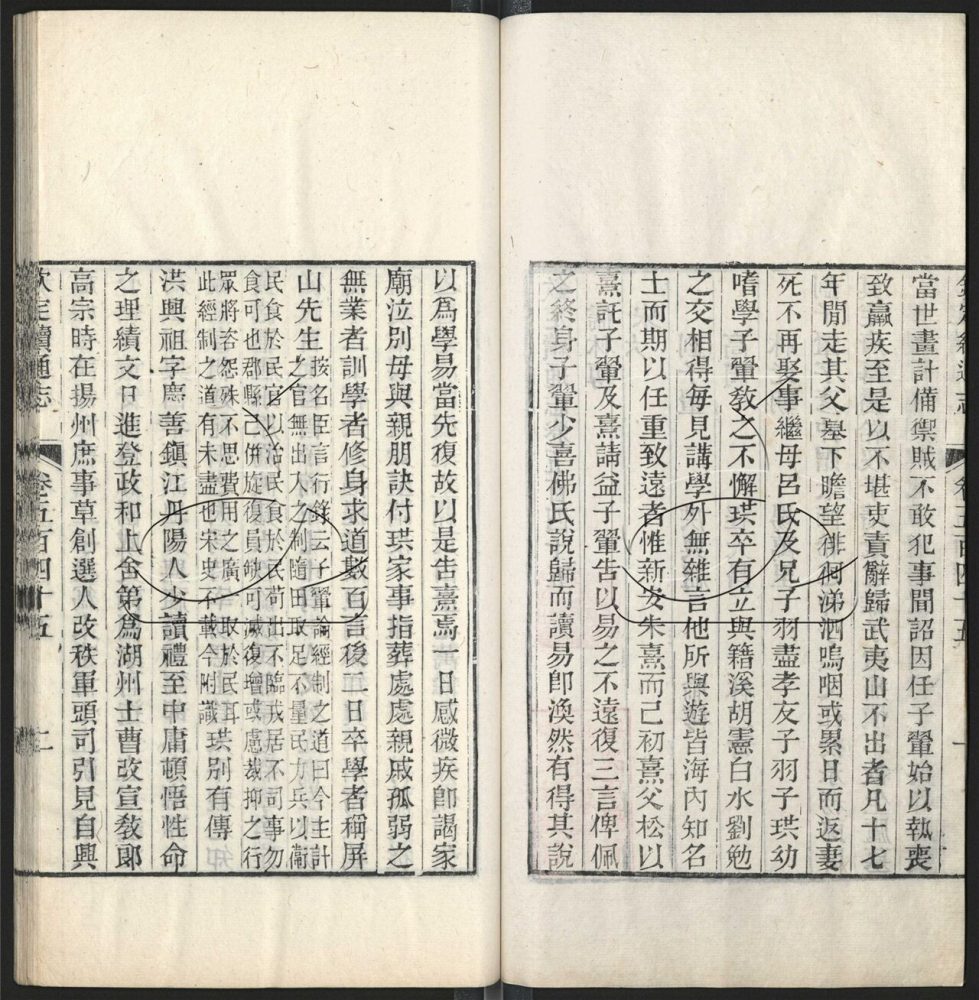 當世畫計備禦賊不敢犯事聞詔因任子翬始以執喪
致羸疾至是以不堪吏責辭歸武夷山不出者凡十七
年閒走其父墓下瞻望徘徊涕泗嗚咽或累日而返妻
死不再娶事繼母呂氏及兄子羽盡孝友子羽子珙幼
嗜學子翬教之不懈珙卒有立與籍溪胡憲白水劉勉
之交相得每見講學外無雜言他所與遊皆海內知名
士而期以任重致遠者惟新安朱熹而已初熹父松以
熹託子翬及熹請益子翬告以易之不遠復三言俾佩
之終身子翬少喜佛氏說歸而讀易卽渙然有得其說
以爲學易當先復故以是告熹焉一日感微疾卽謁家
廟泣別母與親朋訣付珙家事指葬處處親戚孤弱之
無業者訓學者修身求道數百言後二日卒學者稱屏
山先生按名臣言行錄云子翬論經制之道曰今主計
之官無出入之制隨田取足不量民力兵以衞
民食於民官以治民食於民苟出不臨戎居不司事勿
食可也郡縣已併旋復員缺可減復增或慮裁抑之行
眾將咨怨殊不思費用之廣取於民耳
此經制之道有未盡也宋史不載今附識珙別有傳
洪興祖字慶善鎭江丹陽人少讀禮至中庸頓悟性命
之理績文日進登政和上舍第爲湖州士曹改宣敎郞
高宗時在揚州庶事草創選人改秩軍頭司引見自興
欽定續通志 卷五百四十五 二